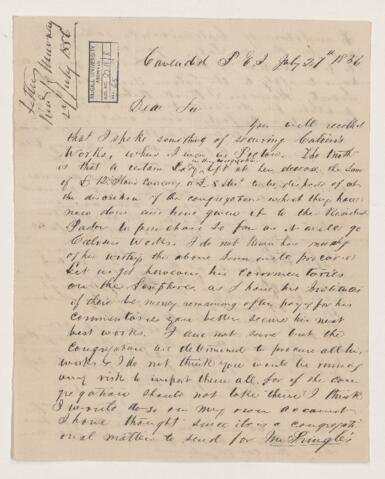 Letter
Isaac Murray
27 July 1856
McGILL UNIVERSITY
Cavendish P E I July 27th 1856
Dear Sir
You will recollect
that I spoke something of securing Calvin's
Works, when I was in Pictou. The truth
is that a certain Lady in this congregation left at her decease the Sum
of £ 12 Island Currency or £ 8 Ster. to be disposed of at
the discretion of the congregation what they have
now done and have given it to the Resident
Pastor to purchase so far as it will go
Calvins Works. I do not know how many
of his writings the above sum will procure
Let us get however his Commentaries
on the Scriptures, as I have his Institutes
If there be money remaining after paying for his
Commentaries you better secure his next
best works. I am not sure but the
Congregation are determined to procure all his
works & I do not think you would be running
any risk to import them all, for if the con
gregation should not take them I think
I would do so on my own account
I have thought since it is a congregati
onal matter to send for Mr Pringle's